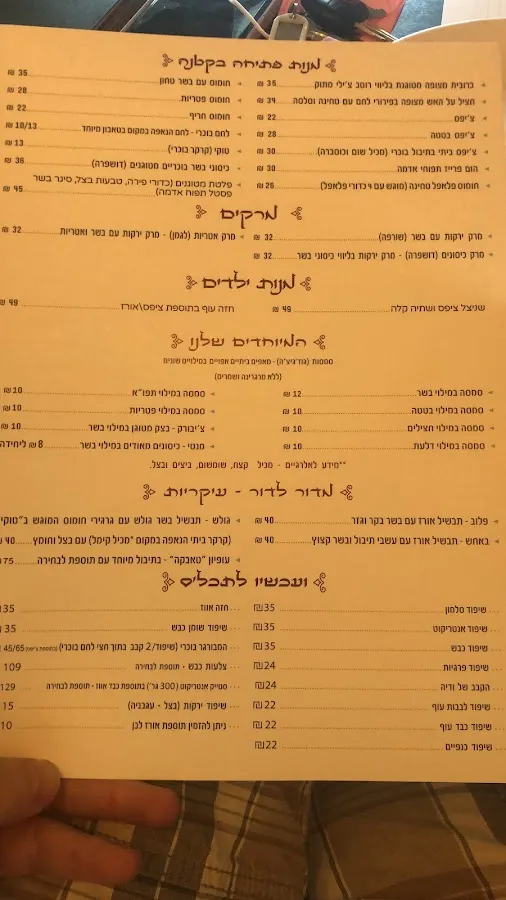 מנות פתיחה בקטנה
כרובית מצופה מטוגנת בליווי רוטב צ'ילי מתוק 35 ₪
חציל על האש מצופה בפירורי לחם עם טחינה וסלסה 34 ₪
צ'יפס 22 ₪
צ'יפס בטטה 28 ₪
צ'יפס ביתי בתיבול בוכרי (מכיל שום וכוסברה) 30 ₪
הום פרייז תפוחי אדמה 30 ₪
חומוס פלאפל טחינה (מוגש עם 4 כדורי פלאפל) 26 ₪
חומוס עם בשר טחון 35 ₪
חומוס פטריות 28 ₪
חומוס חריף 22 ₪
לחם בוכרי - לחם הנאפה במקום בטאבון מיוחד 10/13 ₪
טוקי (קרקר בוכרי) 13 ₪
כיסוני בשר בוכריים מטוגנים (דושפרה) 36 ₪
פלטת מטוגנים (כדורי פירה, טבעות בצל, סיגר בשר
פסטל תפוח אדמה) 45 ₪
מרקים
מרק ירקות עם בשר (שורפה) 32 ₪
מרק כיסונים (דושפרה) - מרק ירקות בליווי כיסוני בשר 32 ₪
מרק אטריות (לגמן) - מרק ירקות עם בשר ואטריות 32 ₪
מנות ילדים
שניצל ציפס ושתיה קלה 49 ₪
חזה עוף בתוספת ציפס\אורז 49 ₪
המיוחדים שלנו
סמסות (גוז'גיצ'ה) - מאפים ביתיים אפויים במילויים שונים
(ללא מרגרינה ושמרים)
סמסה במילוי בשר 12 ₪
סמסה במילוי בטטה 10 ₪
סמסה במילוי חצילים 10 ₪
סמסה במילוי דלעת 10 ₪
סמסה במילוי תפו"א 10 ₪
סמסה במילוי פטריות 10 ₪
צ'יבורק - בצק מטוגן במילוי בשר 10 ₪
מנטי - כיסונים מאודים במילוי בשר 8 ₪ ליחידה
**מידע לאלרגיים - מכיל קצח, שומשום, ביצים ובצל.
מדור לדור - עיקריות
פלוב - תבשיל אורז עם בשר בקר וגזר 40 ₪
באחש - תבשיל אורז עם עשבי תיבול ובשר קצוץ 40 ₪
גולש - תבשיל בשר גולש עם גרגירי חומוס המוגש ב"טוקי"
(קרקר ביתי הנאפה במקום *מכיל קימל) עם בצל וחומץ 40 ₪
עופיון "טאבקה" - בתיבול מיוחד עם תוספת לבחירה 75
ועכשיו לתכלס
שיפוד סלמון 35₪
שיפוד אנטריקוט 35₪
שיפוד כבש 35₪
שיפוד פרגיות 24₪
הקבב של ודיה 24₪
שיפוד לבבות עוף 22₪
שיפוד כבד עוף 22₪
שיפוד כנפיים 22₪
חזה אווז 35
שיפוד שומן כבש 35
המבורגר בוכרי (שיפוד/2 קבב בתוך חצי לחם בוכרי) 45/65
צלעות כבש - תוספת לבחירה 109
סטייק אנטריקוט (300 גר') בתוספת כבד אווז - תוספת לבחירה 129
שיפוד ירקות (בצל - עגבניה) 15
ניתן להזמין תוספת אורז לבן 10